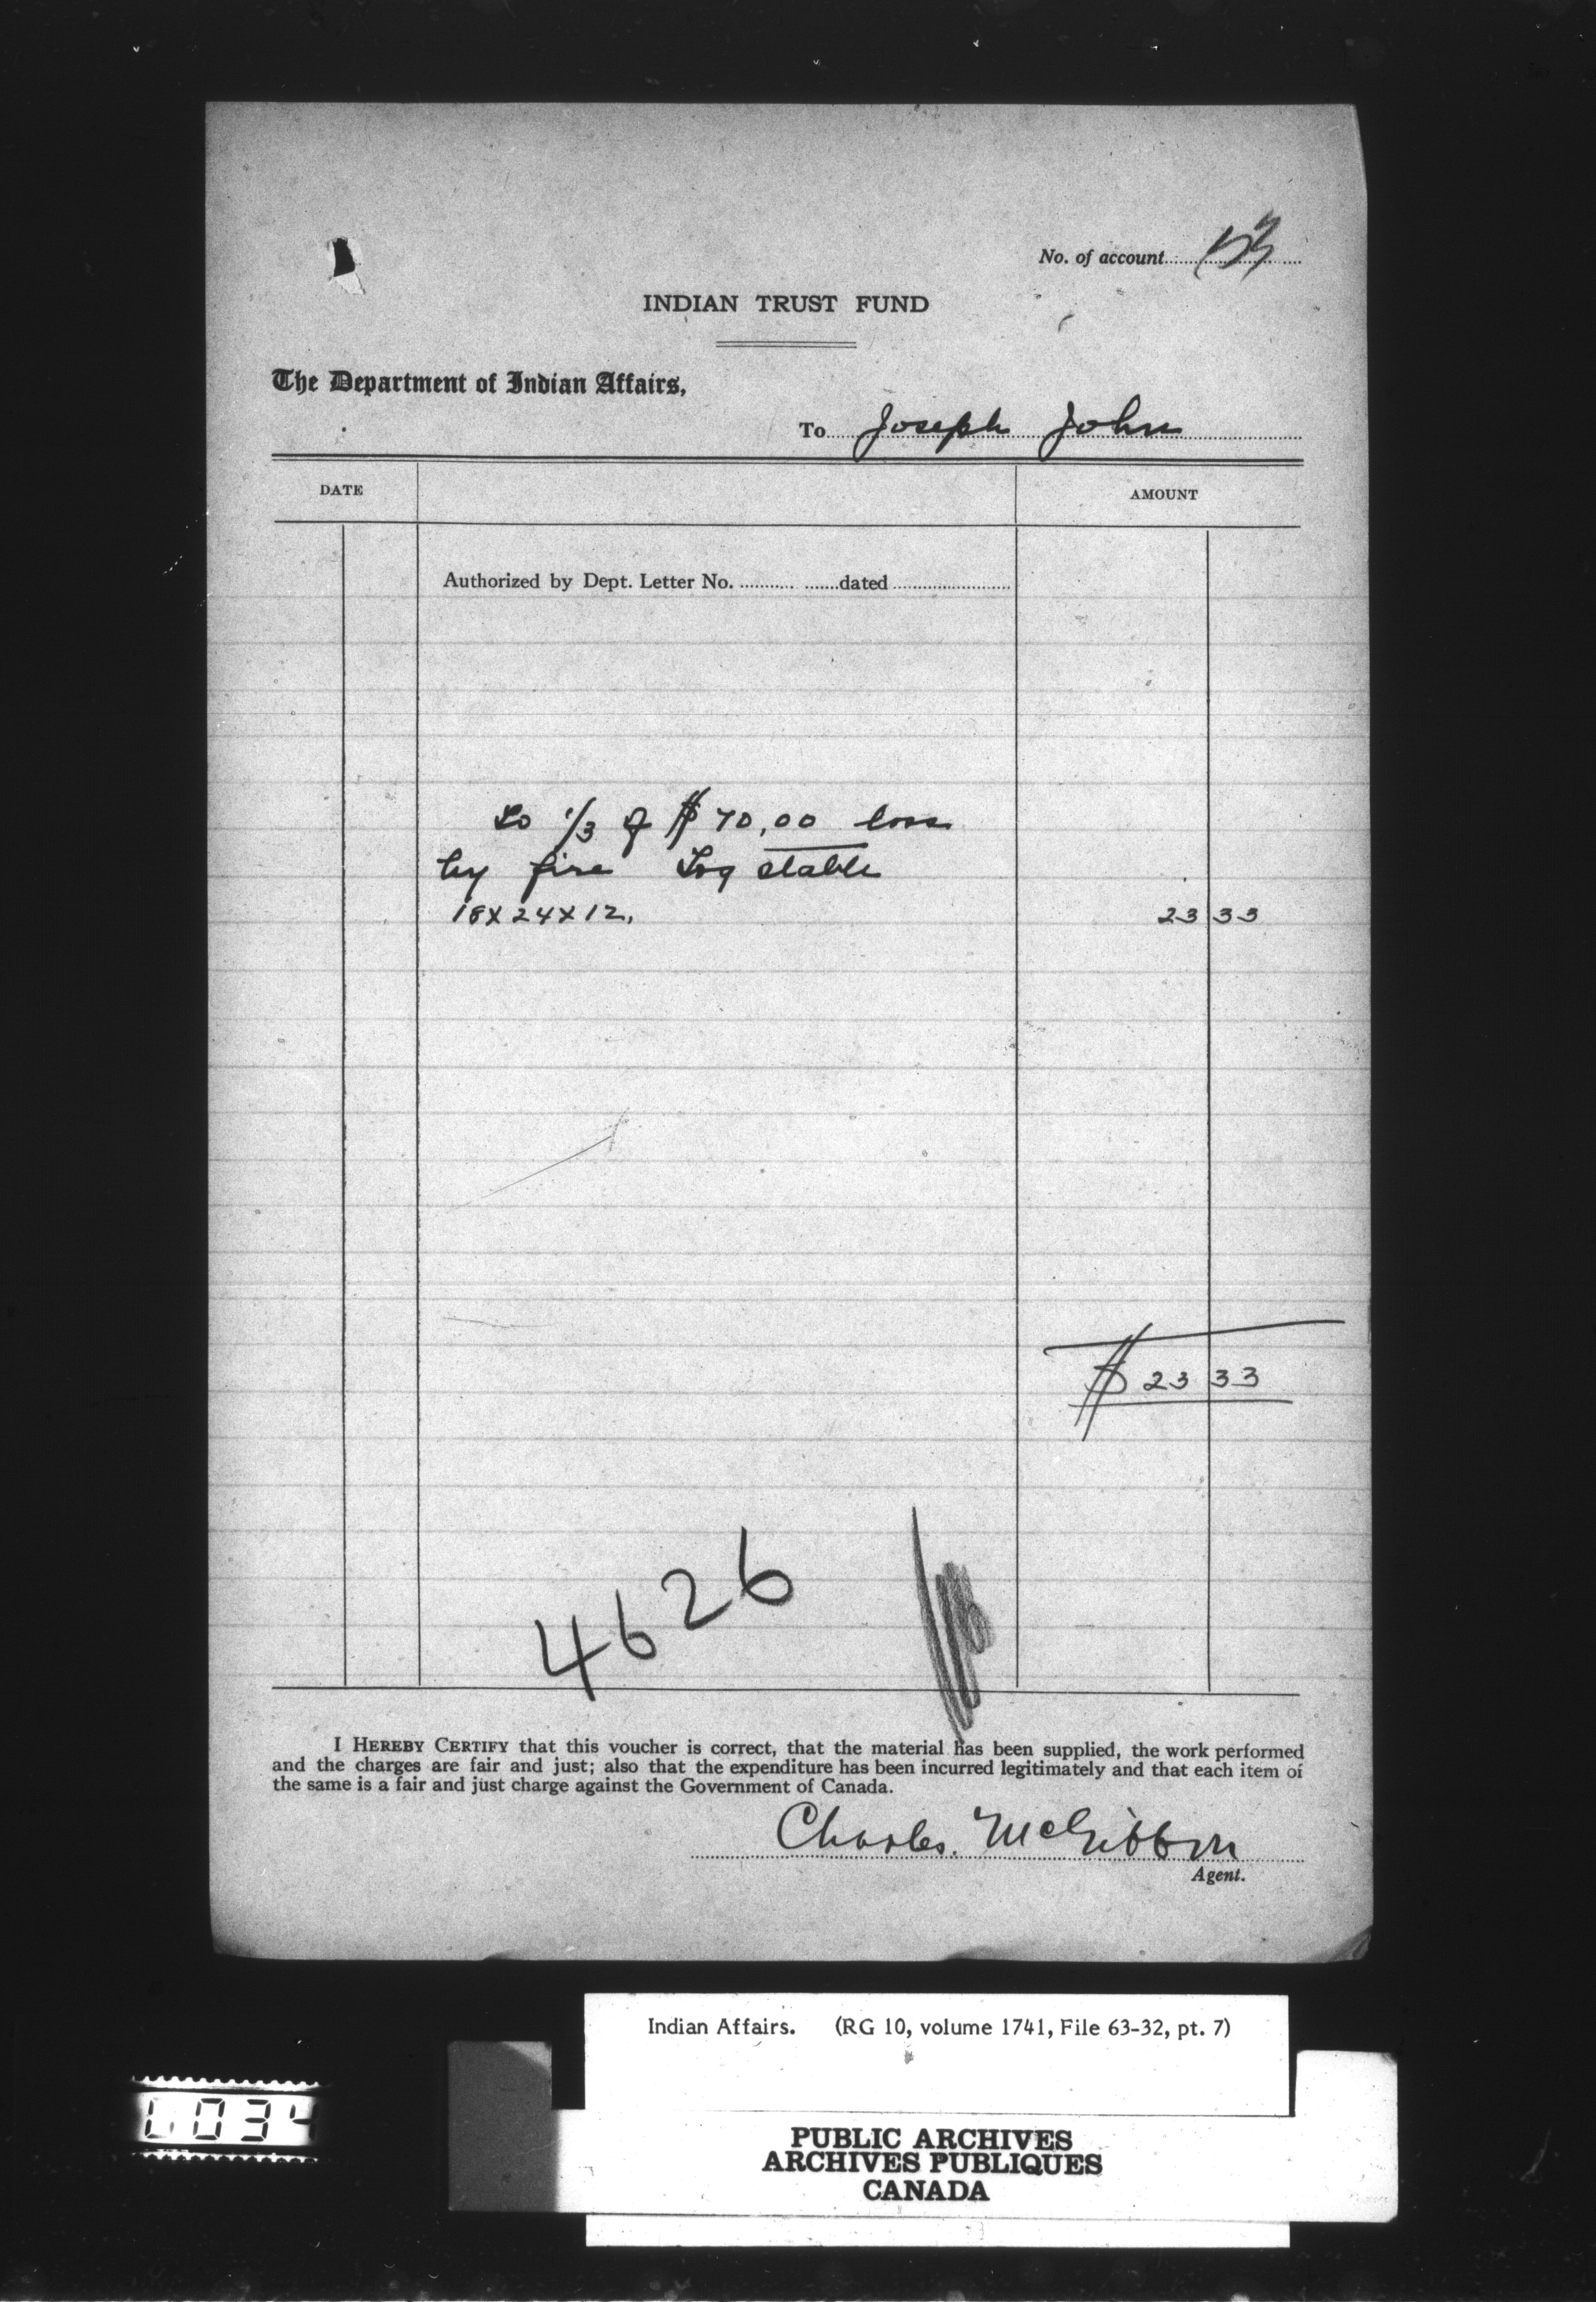 No. of account
INDIAN TRUST FUND
The Department of Indian Affairs,
To Joseph John
DATE AMOUNT
Authorized by Dept. Letter No. dated
To 1/3 of $70,00 loss
by fire Log stable
18x24x12, 23 33
$ 23 33
4626
I HEREBY CERTIFY that this voucher is correct, that the material has been supplied, the work performed
and the charges are fair and just; also that the expenditure has been incurred legitimately and that each item of
the same is a fair and just charge against the Government of Canada.
Charles McGibbon
Agent.
Indian Affairs. (RG 10, volume 1741, File 63-32, pt. 7)
PUBLIC ARCHIVES
ARCHIVES PUBLIQUES
CANADA